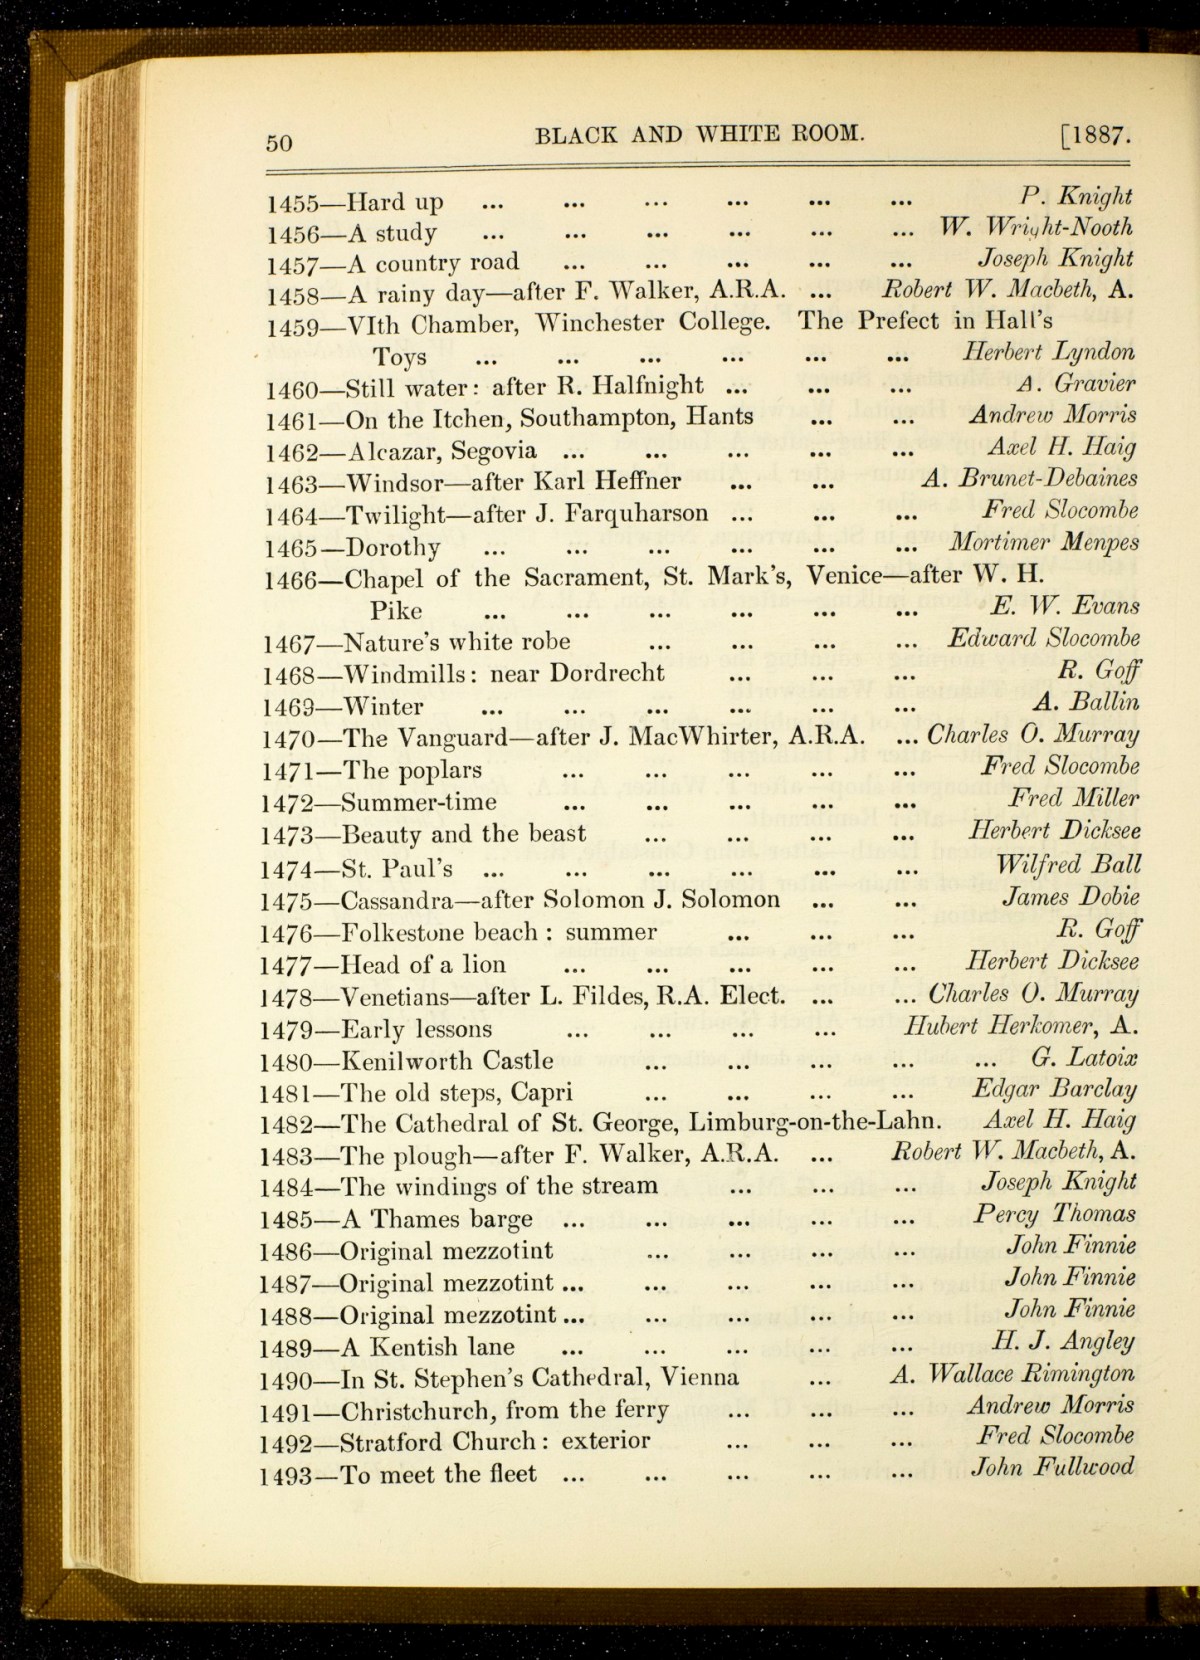 50 BLACK AND WHITE ROOM. [1887.
1455—Hard up ... ... ... ... ... ... P. Knight
1456—A study ... ... ... ... ... ... W. Wright-Nooth
1457—A country road ... ... ... ... ... Joseph Knight
1458—A rainy day—after F. Walker, A.R.A. ... Robert W. Macbeth, A.
1459—VIth Chamber, Winchester College. The Prefect in Hall's
Toys ... ... ... ... ... ... Herbert Lyndon
1460—Still water: after R. Halfnight ... ... ... A. Gravier
1461—On the Itchen, Southampton, Hants ... ... Andrew Morris
1462—Alcazar, Segovia ... ... ... ... ... Axel H. Haig
1463—Windsor—after Karl Heffner ... ... A. Brunet-Debaines
1464—Twilight—after J. Farquharson ... ... ... Fred Slocombe
1465—Dorothy ... ... ... ... ... ... Mortimer Menpes
1466—Chapel of the Sacrament, St. Mark's, Venice—after W. H.
Pike ... ... ... ... ... ... E. W. Evans
1467—Nature's white robe ... ... ... ... Edward Slocombe
1468—Windmills: near Dordrecht ... ... ... R. Goff
1469—Winter ... ... ... ... ... ... A. Ballin
1470—The Vanguard—after J. MacWhirter, A.R.A. ... Charles O. Murray
1471—The poplars ... ... ... ... ... Fred Slocombe
1472—Summer-time ... ... ... ... ... Fred Miller
1473—Beauty and the beast ... ... ... ... Herbert Dicksee
1474—St. Paul's ... ... ... ... ... ... Wilfred Ball
1475—Cassandra—after Solomon J. Solomon ... ... James Dobie
1476—Folkestone beach : summer ... ... ... R. Goff
1477—Head of a lion ... ... ... ... ... Herbert Dicksee
1478—Venetians—after L. Fildes, R.A. Elect. ... ... Charles O. Murray
1479—Early lessons ... ... ... ... Hubert Herkomer, A.
1480—Kenilworth Castle ... ... ... ... ... G. Latoix
1481—The old steps, Capri ... ... ... ... Edgar Barclay
1482—The Cathedral of St. George, Limburg-on-the-Lahn. Axel H. Haig
1483—The plough—after F. Walker, A.R.A. ... Robert W. Macbeth, A.
1484—The windings of the stream ... ... ... Joseph Knight
1485—A Thames barge ... ... ... ... ... Percy Thomas
1486—Original mezzotint ... ... ... ... John Finnie
1487—Original mezzotint ... ... ... ... ... John Finnie
1488—Original mezzotint ... ... ... ... ... John Finnie
1489—A Kentish lane ... ... ... ... ... H. J. Angley
1490—In St. Stephen's Cathedral, Vienna ... A. Wallace Rimington
1491—Christchurch, from the ferry ... ... ... Andrew Morris
1492—Stratford Church: exterior ... ... ... Fred Slocombe
1493—To meet the fleet ... ... ... ... ... John Fullwood